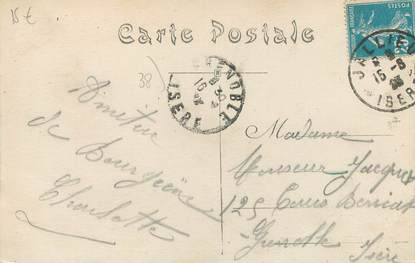 15 €
Carte Postale
POSTES
38
GRENOBLE
ISERE
JALLIEU
ISERE
Amitiés
de Bourgoin
Charlotte
Madame
Monsieur Jacques
125 Cours Berriat
Grenoble
Isère